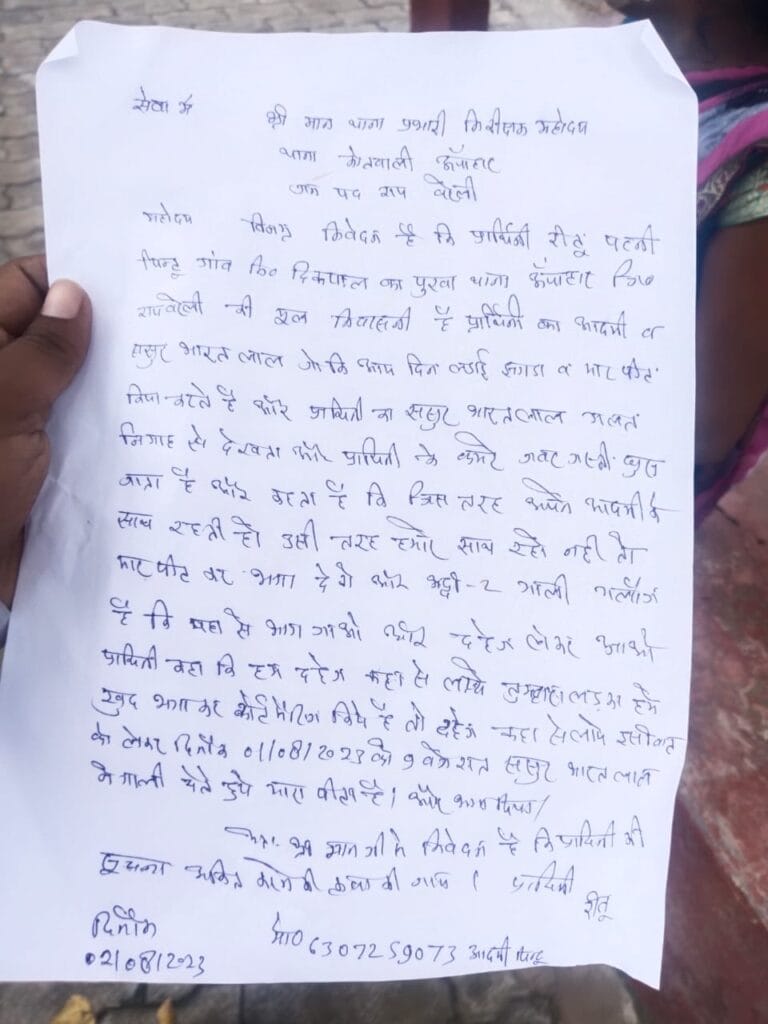 सेवा में
श्री मान थाना प्रभारी निरीक्षक महोदय
थाना कोतवाली ऊँचाहार
जन पद राय बरेली
महोदय विनम्र निवेदन है कि प्रार्थिनी रीतू पत्नी
पिन्टू गांव नि० दिकपाल का पुरवा थाना ऊँचाहार जि०
रायबरेली की मूल निवासनी है प्रार्थिनी का आदमी व
ससुर भारत लाल जो कि आय दिन लडाई झगडा व मार पीट
किया करते है और प्रार्थिनी का ससुर भारतलाल गलत
निगाह से देखता और प्रार्थिनी के कमरे जबर जस्ती घुस
जाता है और कहता है कि जिस तरह अपने आदमी के
साथ रहती हो उसी तरह हमारे साथ रहो नही तो
मार पीट कर भगा देगे और भद्दी-२ गाली गलौज
है कि यहा से भाग जाओ और दहेज लेकर आओ
प्रार्थिनी कहा कि हम दहेज कहा से लाये तुम्हारा लड़का हमें
खुद भगा कर कोर्ट मैरिज किये है तो दहेज कहा से लाये इसी बात
को लेकर दिनाँक 01/08/2023 को 9 बजे रात ससुर भारत लाल
ने गाली देते हुये मारा पीटा है। और भगा दिया।
अतः श्री मान जी से निवेदन है कि प्रार्थिनी की
सूचना अंकित करने की कृपा की जाय। प्रार्थिनी
रीतू
दिनाँक
02/08/2023
मो० 6307259073 आदमी पिन्टू